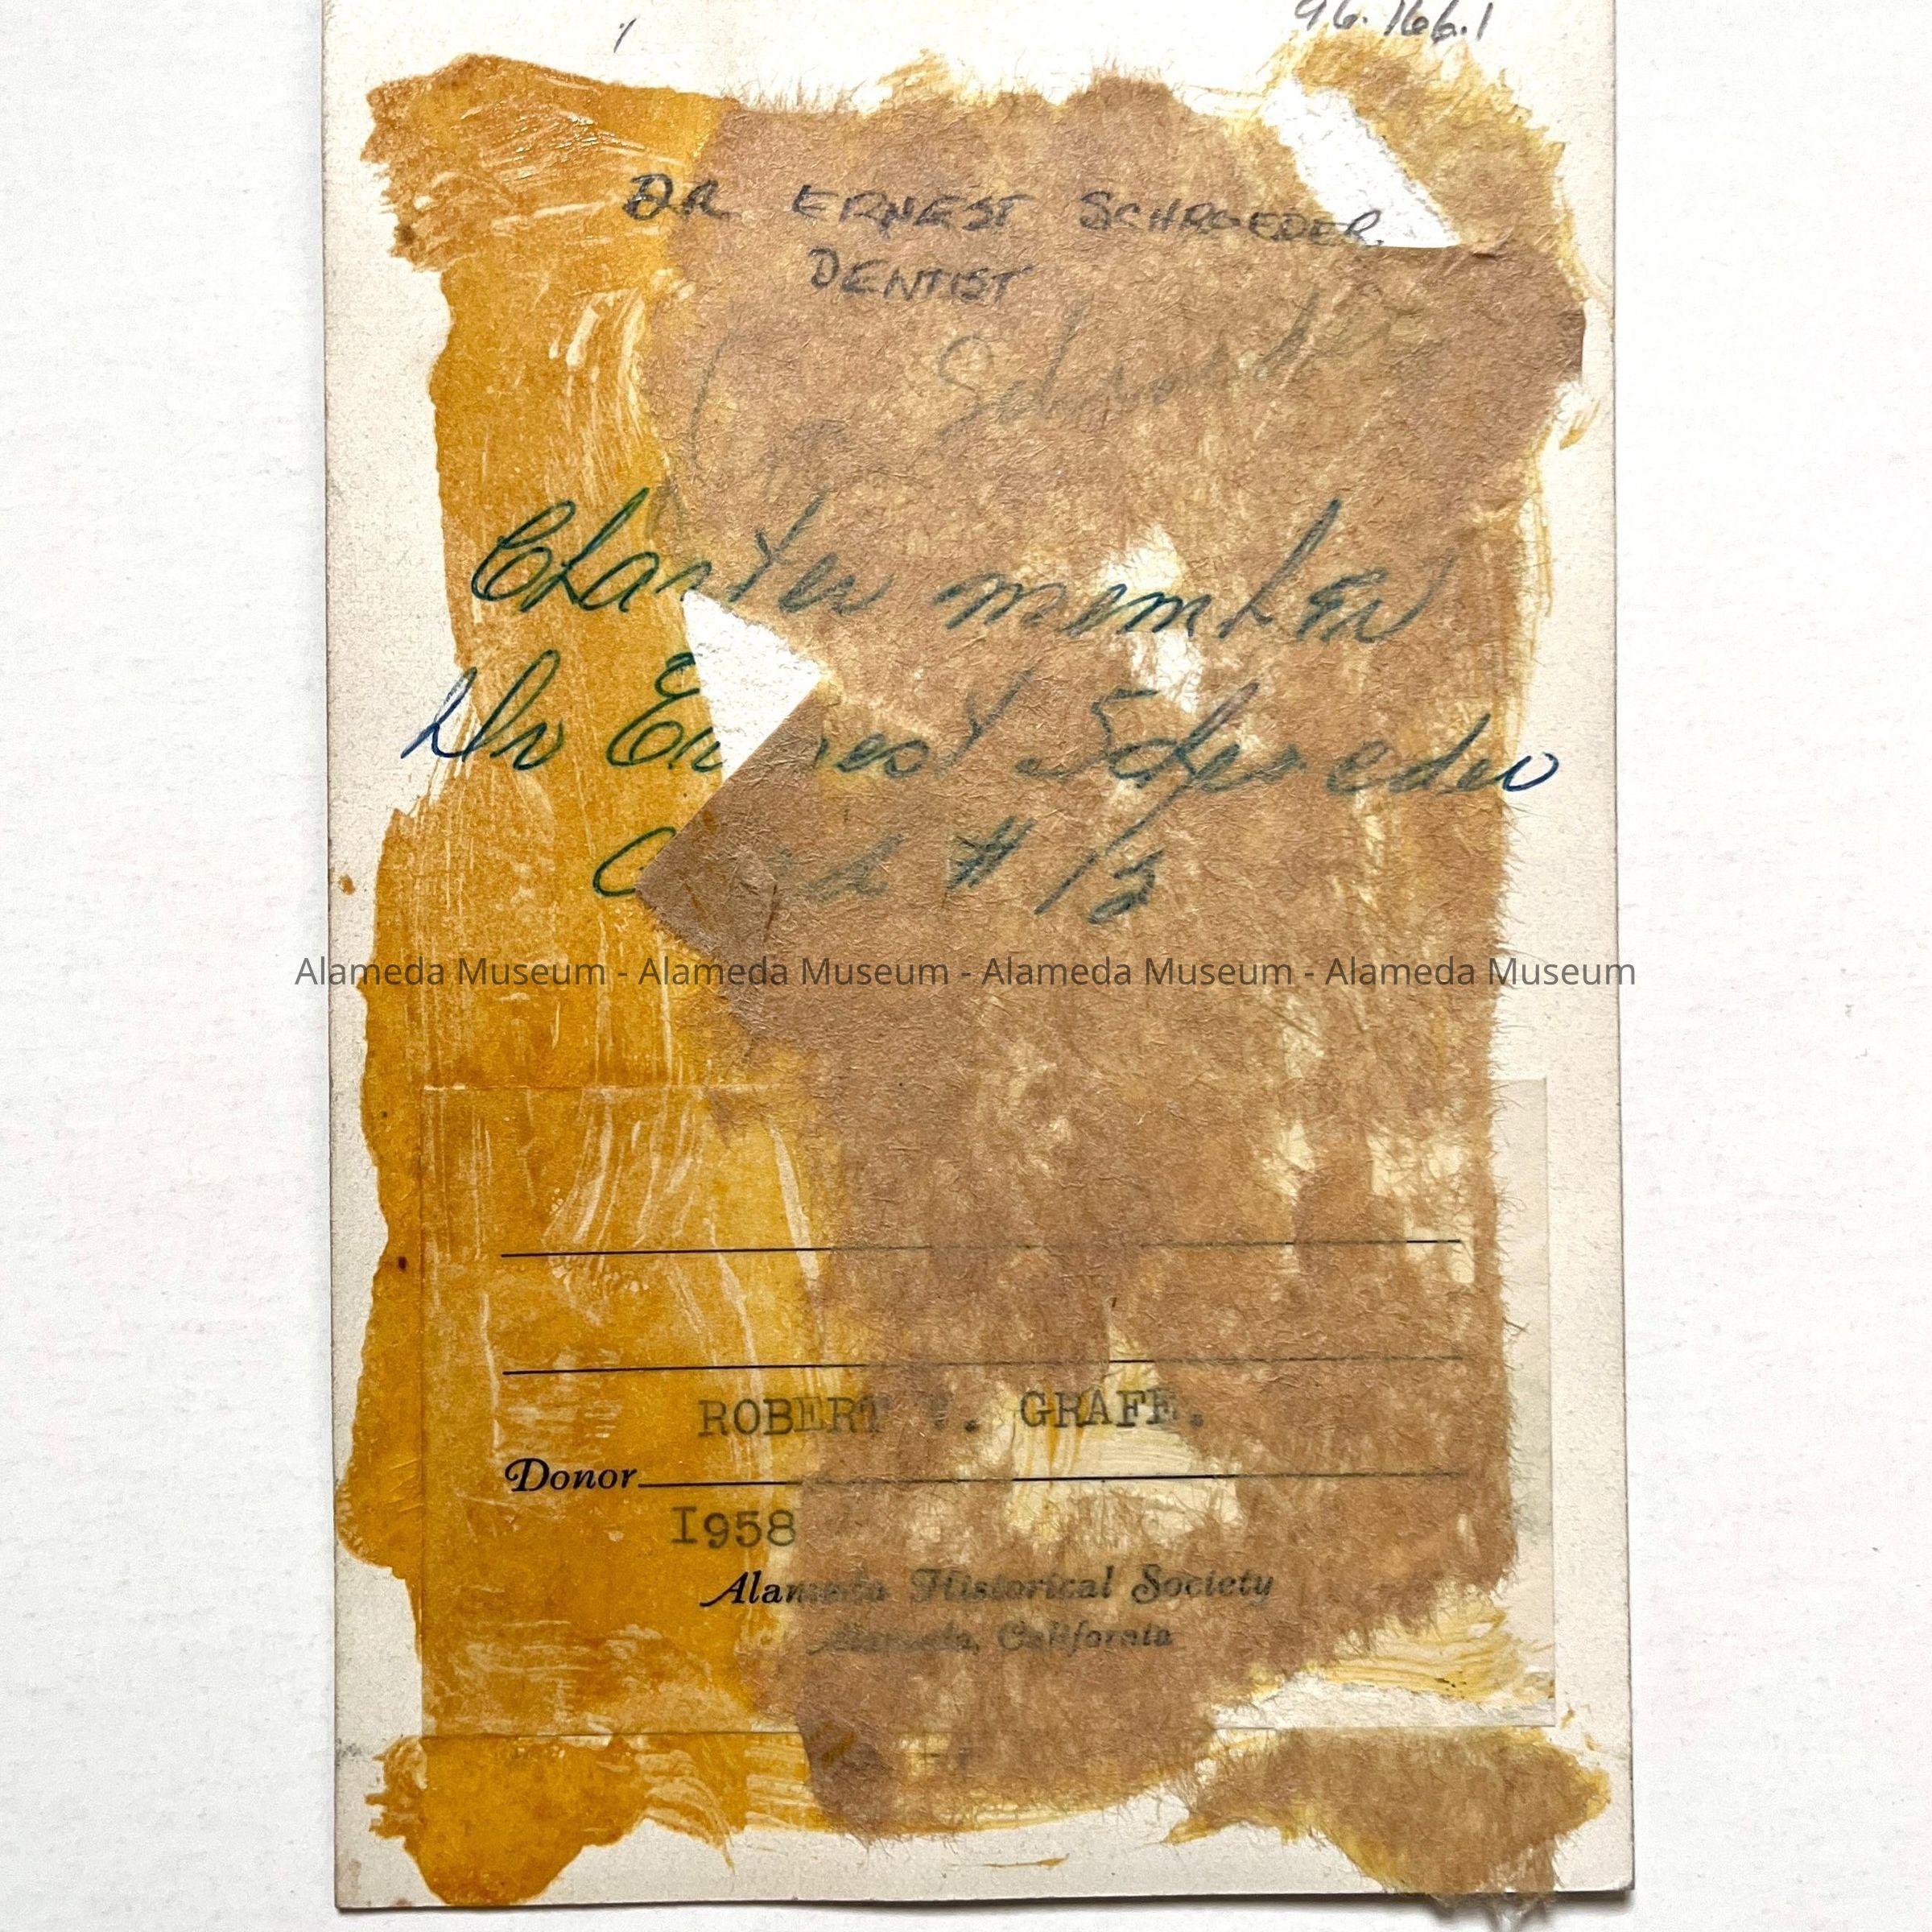 96.166.1
DR ERNEST SCHROEDER
DENTIST
Schroeder
Charter member
Dr Ernest Schroeder
Card # 13
Alameda Museum - Alameda Museum - Alameda Museum - Alameda Museum
ROBERT . GRAFE.
Donor
1958
Alameda Historical Society
Alameda, California